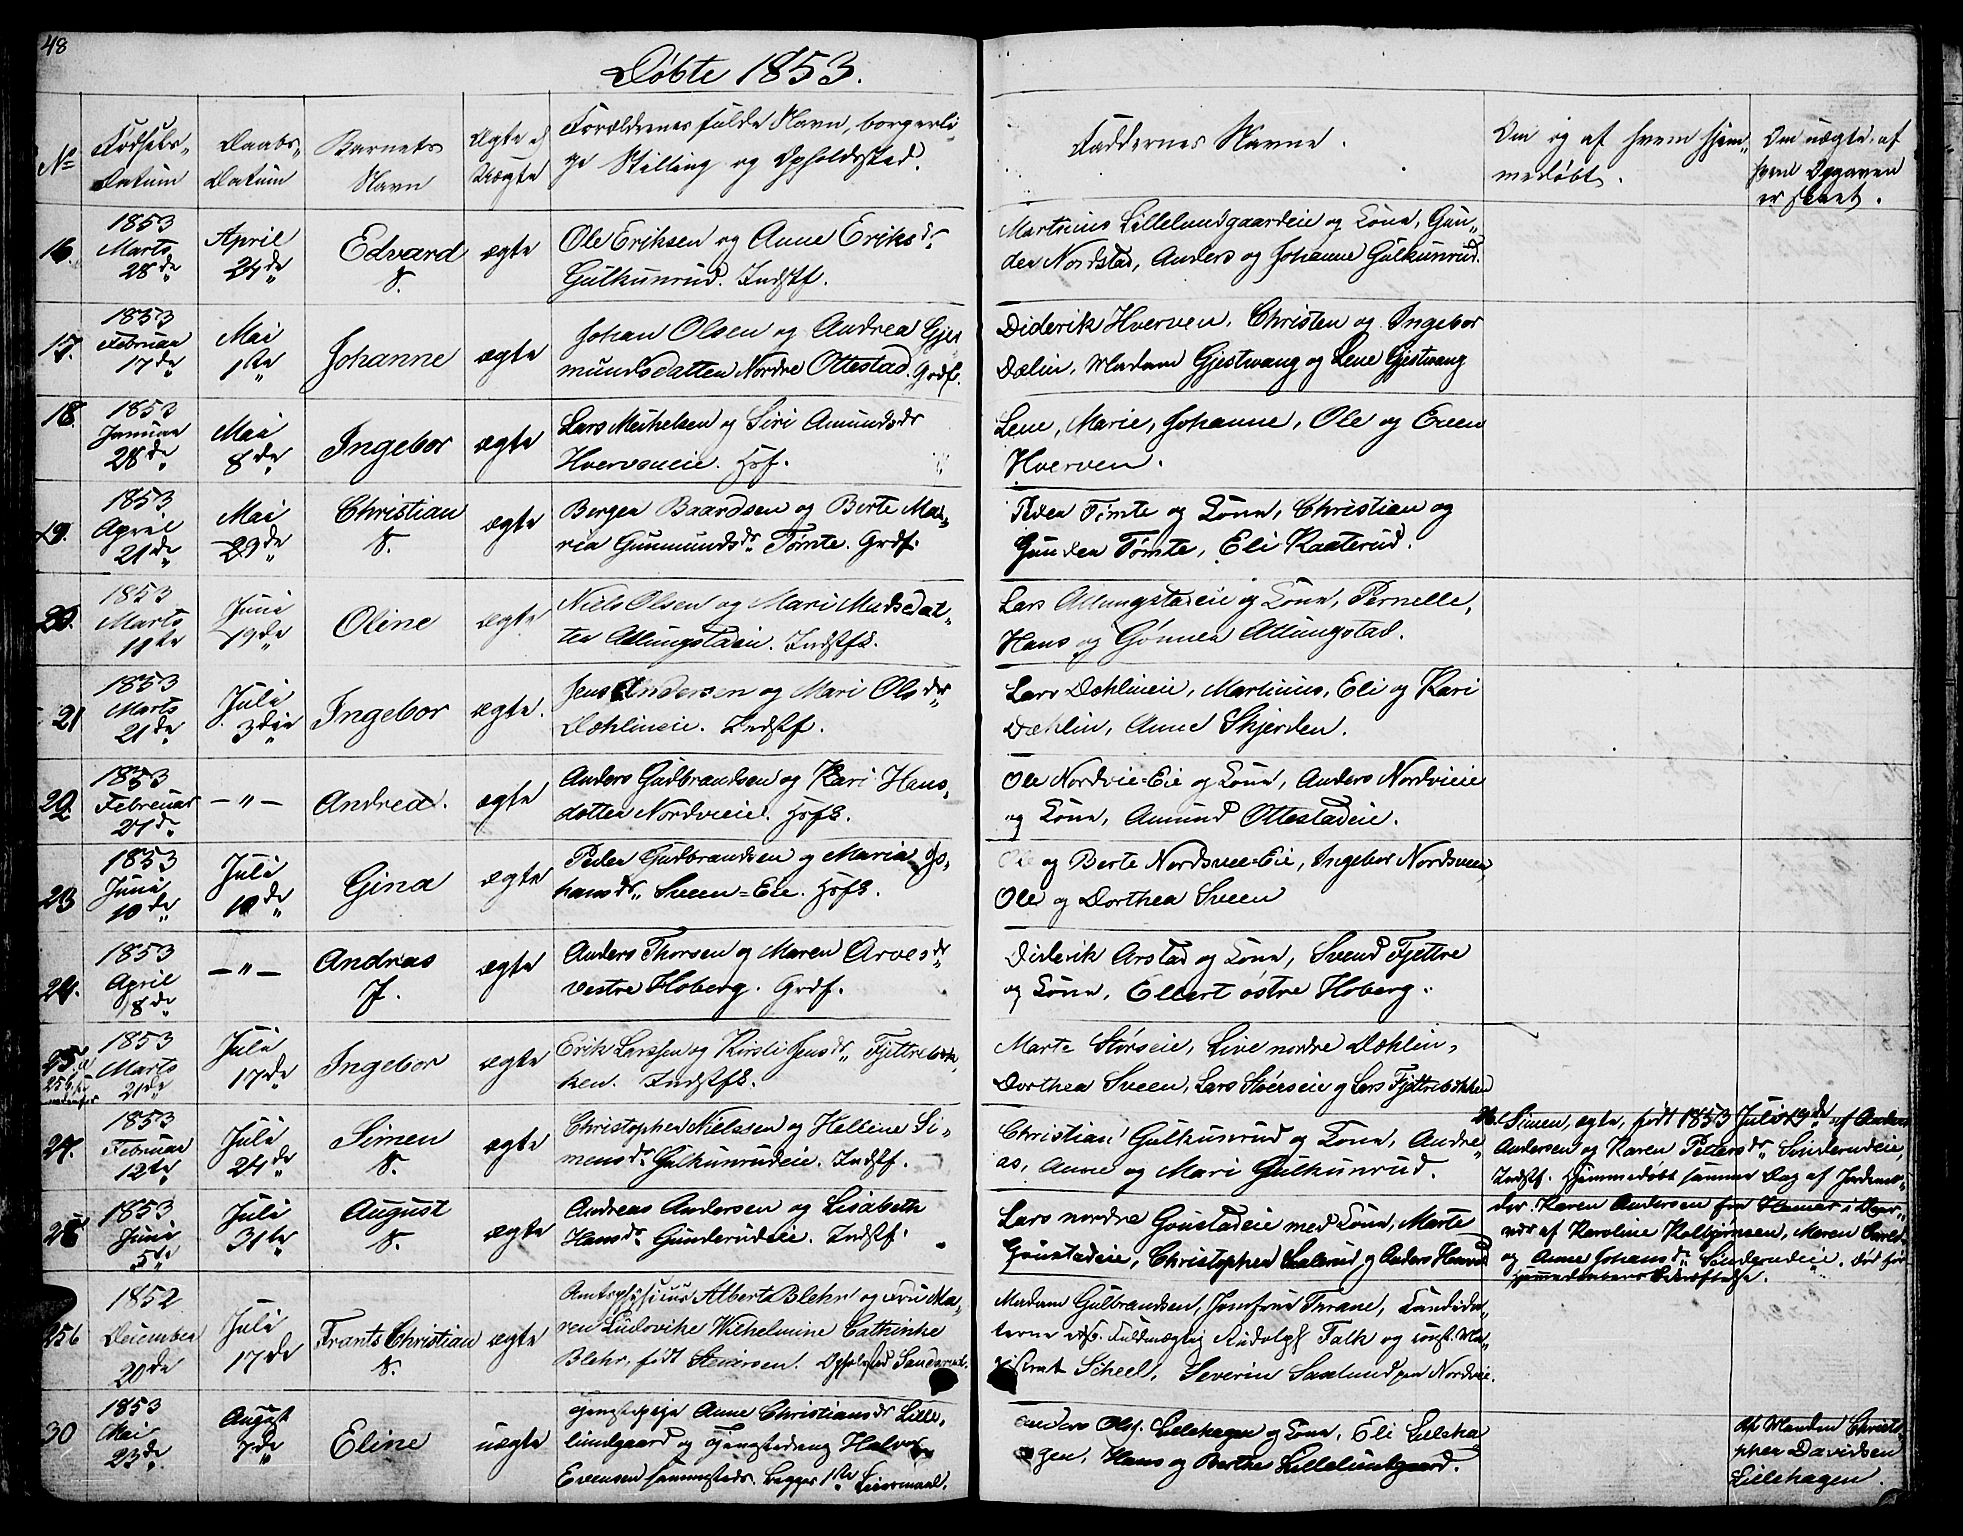 48
Døbte 1853.
No
Fødsels-
Datum
Daabs-
Datum
Barnets
Navn
Ægte el
Uægte
Forældrenes fulde Navn, borgerli-
ge Stilling og Opholdssted.
Faddernes Navne.
Om og af hvem hjem-
medøbt.
Om uægte, af
hvem Opgaven
er skeet.
16.
1853
Marts
28de
April
24de
Edvard
S.
ægte
Ole Eriksen og Anne Eriksdr
Gulkunrud. Indstf.
Martinus Lillelundgaardeie og Kone, Gun-
der Nordstad, Anders og Johanne Gulkunrud.
17.
1853
Februar
17de
Mai
1ste
Johanne
ægte
Johan Olsen og Andrea Gjer
mundsdatter Nordre Ottestad. Grdf.
Diderik Hverven, Christen og Ingebor
Dælin, Madam Gjestvang og Lene Gjestvang
18.
1853
Januar
28de
Mai
8de
Ingebor
ægte
Lars Mikkelsen og Siri Amundsdr
Hverveneie. Hsf.
Lene, Marie, Johanne, Ole og Even
Hverven.
19.
1853
April
21de
Mai
29de
Christian
S.
ægte
Berger Baardsen og Berte Ma-
ria Gunmundsdr Tømte. Grdf.
Peder Tømte og Kone, Christian og
Gunder Tømte, Eli Kaaterud.
20.
1853
Marts
11te
Juni
19de
Oline
ægte
Niels Olsen og Mari Madsdat-
ter Attungstadeie. Indstf.
Lars Attungstadeie og Kone, Pernelle,
Hans og Gønner Attungstad.
21
1853
Marts
21de
Juli
3die
Ingebor
ægte.
Jens Andersen og Mari Olsdr
Dæhlineie. Indstf.
Lars Dæhlineie, Martinus, Eli og Kari
Dæhlin, Anne Skjerden.
22
1853
Februar
27de
— " —
Andrea.
ægte
Anders Gudbrandsen og Kari Hans-
datter Nordvieie. Hsf.
Ole Nordvie-Eie og Kone, Anders Nordvieie
og Kone, Amund Ottestadeie.
23
1853
Juni
10de
Juli
10de
Gina
ægte
Peder Gudbrandsen og Maria Jo-
hansdr Sveen-Eie. Hsf.
Ole og Berte Nordsvee-Eie, Ingebor Nordsveen
Ole og Dorthea Sveen
24.
1853
April
8de
— " —
Andreas
J.
ægte
Anders Thorsen og Maren Arvesdr
vestre Hoberg. Grdf.
Diderik Arstad og Kone, Svend Fjettre
og Kone, Ellert østre Hoberg.
25.
1853
Marts
21de
Juli
17de
Ingebor
ægte
Erik Larssen og Kirsti Jensdr Fjettrebak-
ken. Indstf.
Marte Størseie, Live nordre Dæhlin,
Dorthea Sveen, Lars Størseie og Lars Fjettrebakken
27.
1853
Februar
12te
Juli
24de
Simen
S.
ægte
Christopher Nielssen og Helline Si-
mensdr Gulkunrudeie. Indstf.
Christian Gulkunrud og Kone, Andre-
as, Anne og Mari Gulkunrud.
26. Simen, ægte, født 1853 Juli 19de af Anders
Andersen og Karen Pettersdr Sünderudeie,
Indstf. Hjemmedøbt samme Dag af Jordemo-
der Karen Andersen fra Hamar i Over-
vær af Karoline Kolbjørnsen, Maren
og Anne Johansdr Sünderudeie. Død før
Hjemmedaabens Bekræftelse.
28
1853
Juni
5te
Juli
31te
August
S.
ægte
Andreas Andersen og Lisabeth
Hansdr Gunderudeie. Indstf.
Lars nordre Gonstadeie med Kone, Marte
Gonstadeie, Christopher og Anders
256
1852
December
20de
Juli
17de
Frants Christian
S.
ægte
Amtsphysicus Albert Blehr og Frue Ma-
ren Ludovike Wilhelmine Cathinke
Blehr, født Steinersen. Opholdssted
Madam Gulbrandsen, Jomfrue Thrane, Candida-
terne Fuldmægtig Rudolph Falk og const. Ma-
gistrat Scheel, Severin Saxlund paa Nordvie.
30
1853
Mai
23de
August
7de
Eline
uægte
Tjenestepige Anne Christiansdr Lille-
lundgaard og Tjenestedreng Halvor
Evensen sammesteds. Begges 1ste Leiermaal.
Anders Ols. Lillehagen og Kone, Eli Lilleha-
gen, Hans og Berthe Lillelundgaard.
Af Manden Christo
pher Davidsen
Lillehagen.